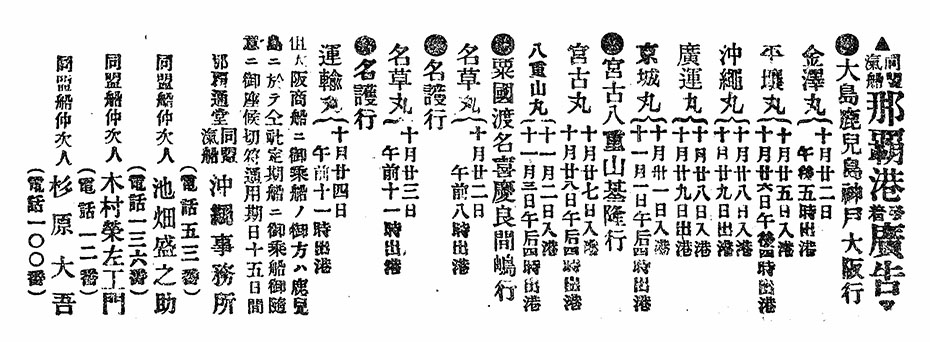 ▲同盟汽船那覇港発着廣告▼
●大島鹿兒島神戸大阪行
金澤丸 十月廿二日
午後五時出港
平壤丸 十月廿五日入港
十月廿六日午後四時出港
沖繩丸 十月廿八日入港
十月廿九日出港
廣運丸 十月廿八日入港
十月廿九日出港
京城丸 十月卅一日入港
十一月一日午后四時出港
●宮古八重山基隆行
宮古丸 十月廿七日入港
十月廿八日午后四時出港
八重山丸 十一月二日入港
十一月三日午后四時出港
●粟國渡名喜慶良間嶋行
名草丸 十月廿二日
午前八時出港
●名護行
名草丸 十月廿三日
午前十一時出港
●名護行
運輸丸 十月廿四日
午前十一時出港
但大阪商船ニ御乘船ノ御方ハ鹿兒
島ニ於テ仝社定期船ニ御乘船御隨
意ニ御座候切符通用期日十五日間
那覇通堂 同盟汽船 沖繩事務所
(電話五三番)
同盟船仲次人 池畑盛之助
(電話一三六番)
同盟船仲次人 木村榮左エ門
(電話一二番)
同盟船仲次人 杉原大吾
(電話一〇〇番)